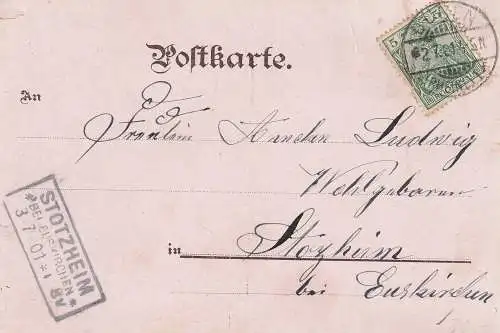 Postkarte.
An
Fräulein Ludwig
Wohlgeboren
in Stozheim
bei Euskirchen
STOTZHEIM
*BEI EUSKIRCHEN*
3 7 01
8V
5